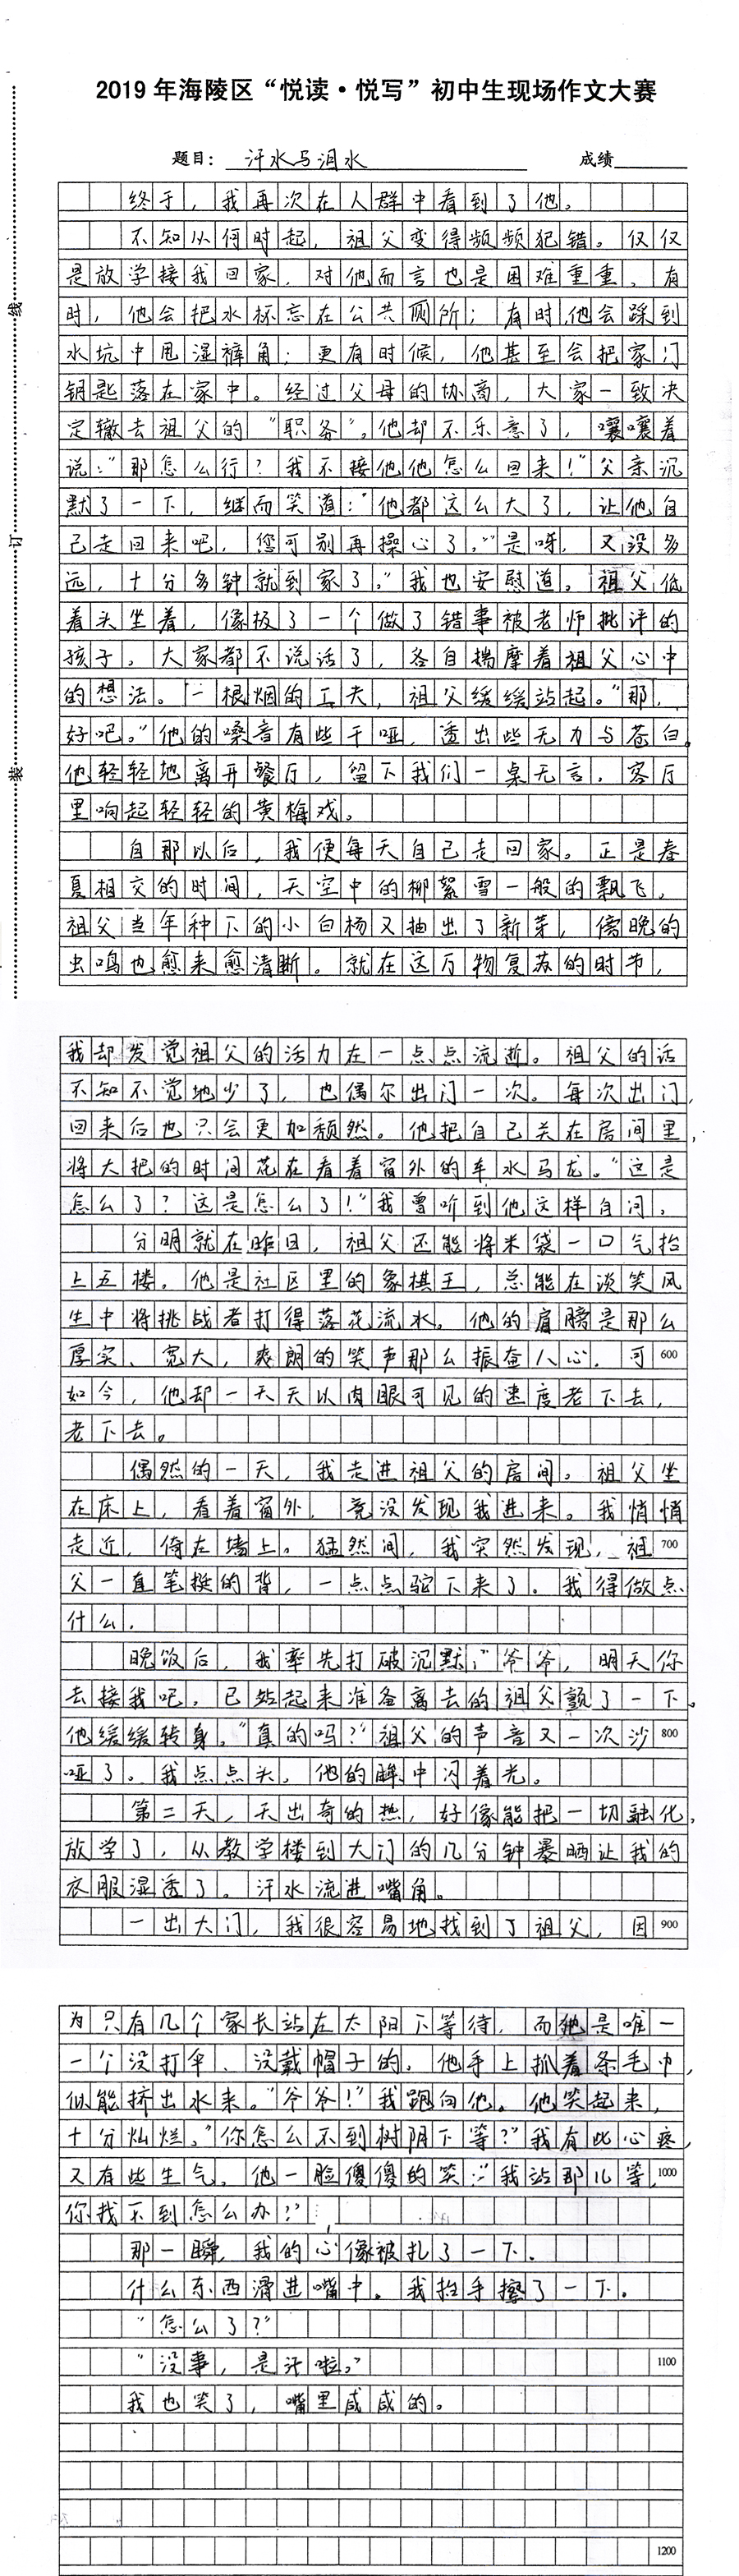 2019年海陵区“悦读·悦写”初中生现场作文大赛
题目：汗水与泪水 成绩
终于，我再次在人群中看到了他。
不知从何时起，祖父变得频频犯错。仅仅
是放学接我回家，对他而言也是困难重重。有
时，他会把水杯忘在公共厕所；有时，他会踩到
水坑中甩湿裤角；更有时候，他甚至会把家门
钥匙落在家中。经过父母的协商，大家一致决
定辙去祖父的“职务”。他却不乐意了，嚷嚷着
说：“那怎么行？我不接他他怎么回来！”父亲沉
默了一下，继而笑道：“他都这么大了，让他自
己走回来吧，您可别再操心了。”“是呀，又没多
远，十分多钟就到家了。”我也安慰道。祖父低
着头坐着，像极了一个做了错事被老师批评的
孩子。大家都不说话了，各自揣摩着祖父心中
的想法。一根烟的工夫，祖父缓缓站起。“那，
好吧。”他的嗓音有些干哑，透出些无力与苍白。
他轻轻地离开餐厅，留下我们一桌无言。客厅
里响起轻轻的黄梅戏。
自那以后，我便每天自己走回家。正是春
夏相交的时间，天空中的柳絮雪一般的飘飞，
祖父当年种下的小白杨又抽出了新芽，傍晚的
虫鸣也愈来愈清晰。就在这万物复苏的时节，
我却发觉祖父的活力在一点点流逝。祖父的话
不知不觉地少了，也偶尔出门一次。每次出门，
回来后也只会更加颓然。他把自己关在房间里，
将大把的时间花在看着窗外的车水马龙。“这是
怎么了？这是怎么了！”我曾听到他这样自问。
分明就在昨日，祖父还能将米袋一口气抬
上五楼。他是社区里的象棋王，总能在谈笑风
生中将挑战者打得落花流水。他的肩膀是那么
厚实、宽大，爽朗的笑声那么振奋人心。可 600
如今，他却一天天以肉眼可见的速度老下去，
老下去。
偶然的一天，我走进祖父的房间。祖父坐
在床上，看着窗外，竟没发现我进来。我悄悄
走近，倚在墙上。猛然间，我突然发现，祖 700
父一直笔挺的背，一点点驼下来了。我得做点
什么。
晚饭后，我率先打破沉默：“爷爷，明天你
去接我吧。已站起来准备离去的祖父颤了一下。
他缓缓转身。“真的吗？”祖父的声音又一次沙 800
哑了。我点点头。他的眸中闪着光。
第二天，天出奇的热，好像能把一切融化。
放学了，从教学楼到大门的几分钟暴晒让我的
衣服湿透了。汗水流进嘴角。
一出大门，我很容易地找到了祖父，因 900
为只有几个家长站在太阳下等待，而他是唯一
一个没打伞、没戴帽子的。他手上抓着条毛巾，
似能挤出水来。“爷爷！”我跑向他。他笑起来，
十分灿烂。“你怎么不到树阴下等？”我有些心疼，
又有些生气。他一脸傻傻的笑：“我站那儿等， 1000
你找不到怎么办？”
那一瞬，我的心像被扎了一下。
什么东西滑进嘴中。我抬手擦了一下。
“怎么了？”
“没事，是汗啦。” 1100
我也笑了，嘴里咸咸的。
1200
装 订 线